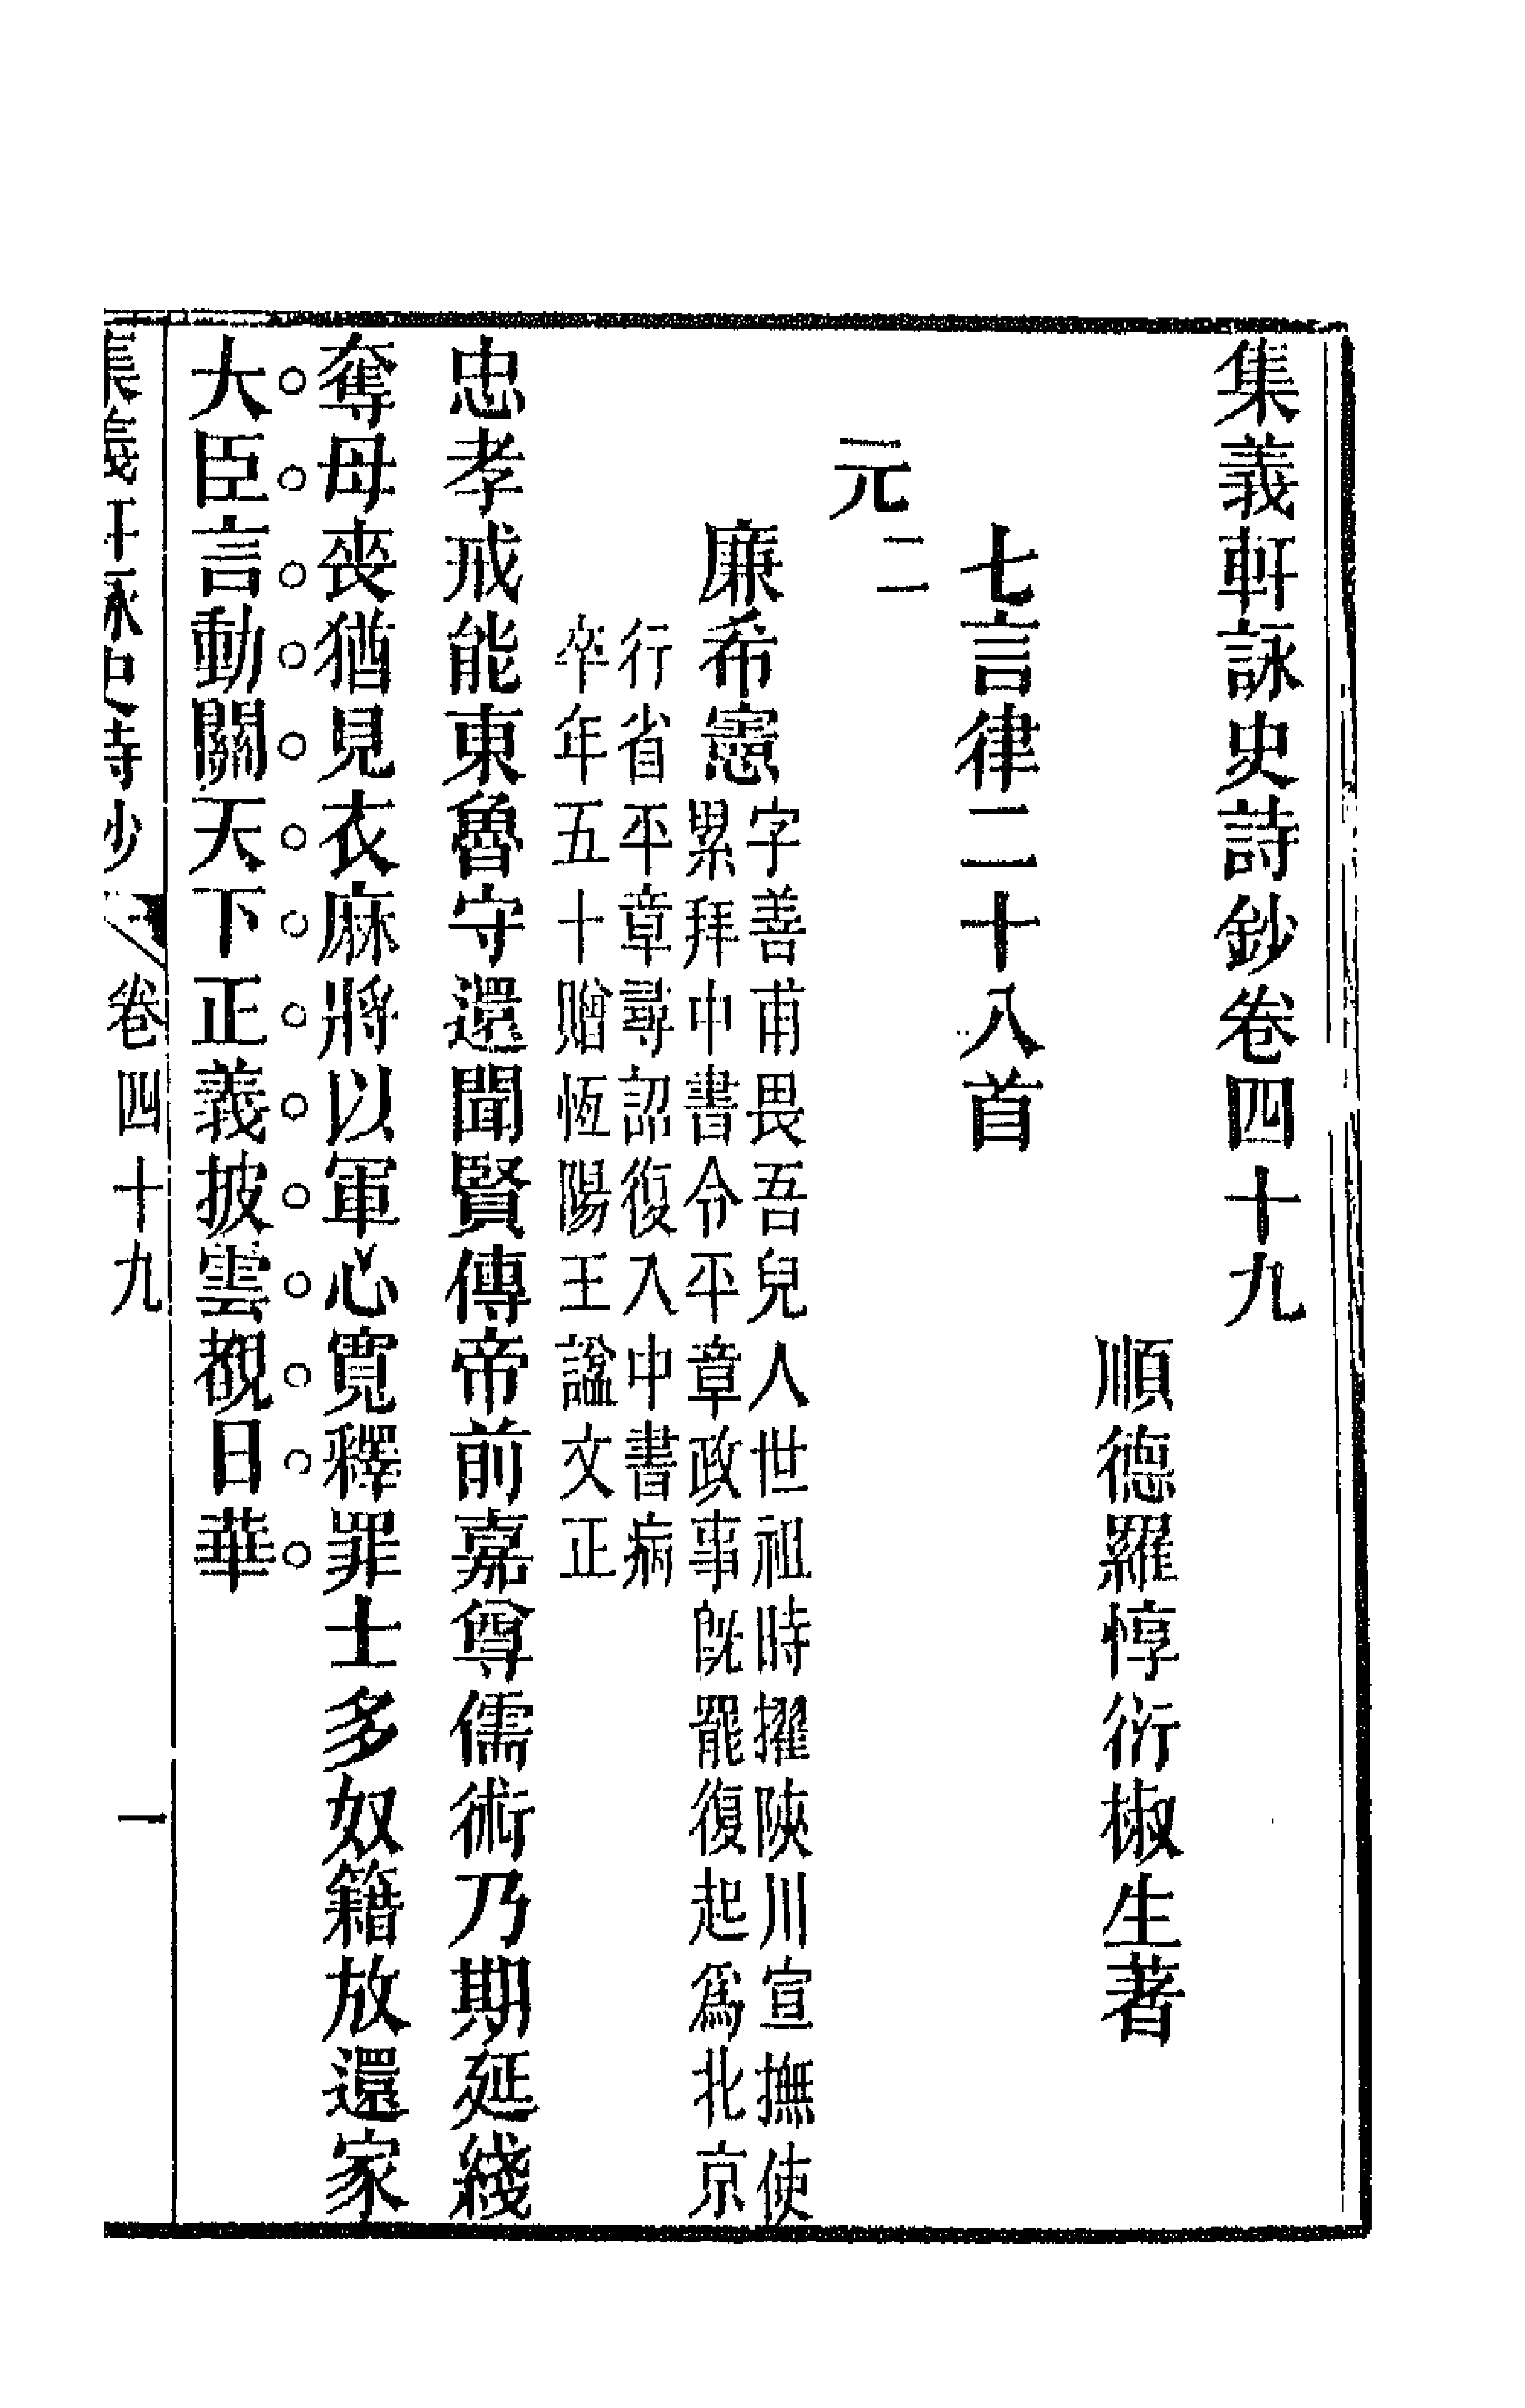 集義軒詠史詩鈔卷四十九
順德羅惇衍椒生著
七言律二十八首
元二
廉希憲
字善甫畏吾兒人世祖時擢陜川宣撫使
累拜中書令平章政事旣罷復起爲北京
行省平章尋詔復入中書病
卒年五十贈恆陽王諡文正
忠孝戒能東魯守還聞賢傳帝前嘉尊儒術乃期延綫
奪母喪猶見衣麻將以軍心寬釋罪士多奴籍放還家
大臣言動關天下正義披雲覩日華
集義軒詠史詩鈔 卷四十九 一